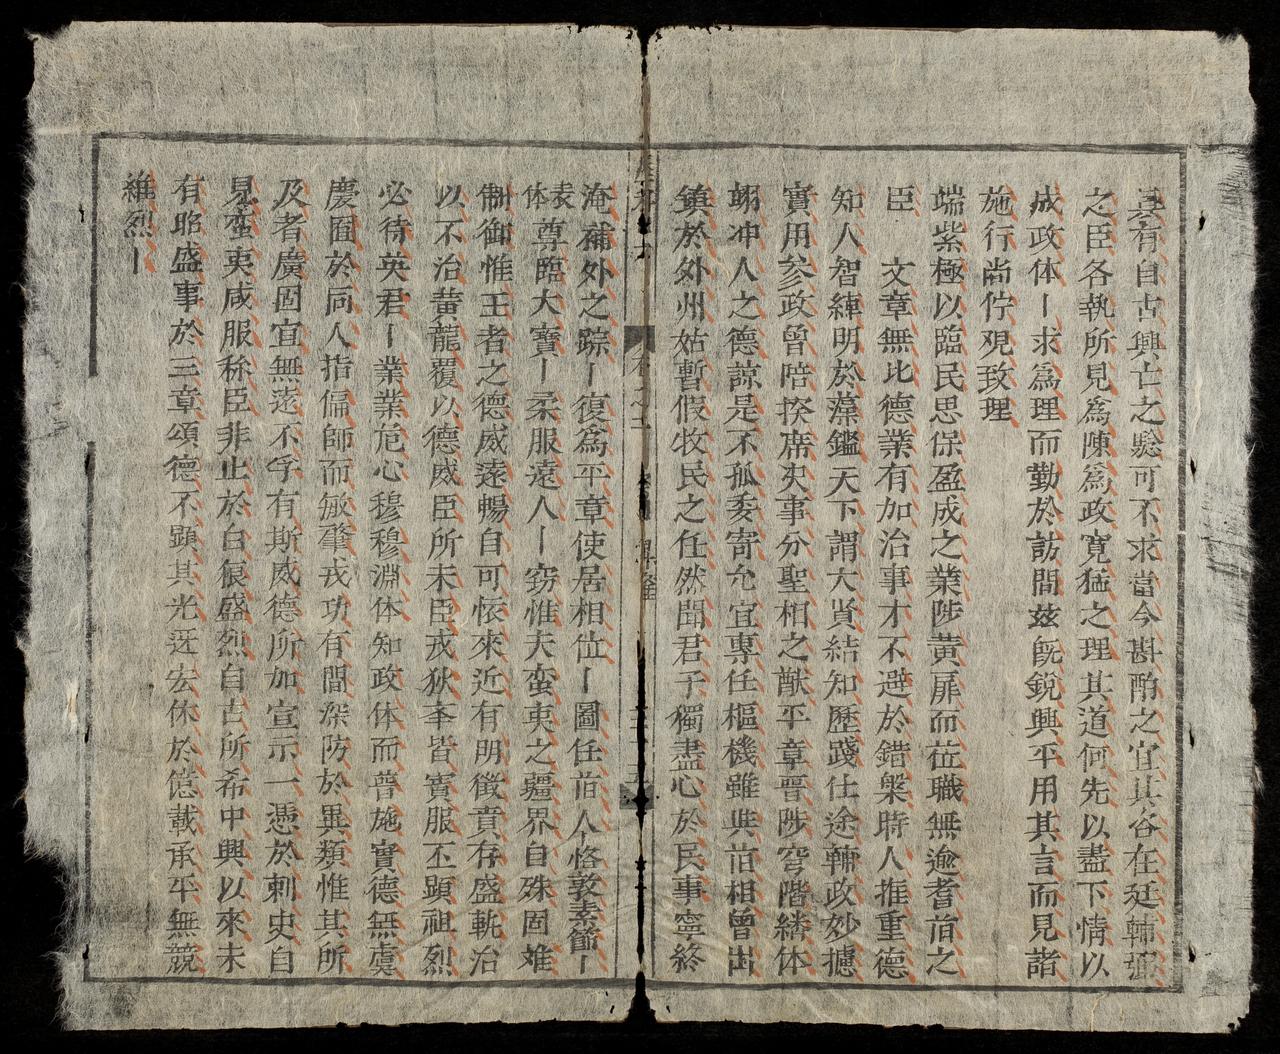 具有自古興亡之驗可不求當今斟酌之宜其各在廷輔弼
之臣各執所見為陳為政寬猛之理其道何先以盡下情以
成政体丨求為理而勤於訪問兹旣銳興平用其言而見諸
施行尚佇覌致理
端紫極以臨民思保盈成之業陟黃扉而莅職無逾耆𫢂之
臣 文章無比德業有加治事才不避於錯槃時人推重德
知人智緯明於藻鑑天下謂大賢結知歷踐仕途輔政妙攄
實用参政曾陪揆席史事分聖相之猷平章晉陟穹階綉体
翊冲人之德諒是不孤委寄允宜專任樞機雖典𫢂相曾出
鎮於外州姑暫假牧民之任然聞君子獨盡心於民事寧終
淹補外之踪丨復為平章使居相位丨圖任𫢂人恪敦素節丨
表体尊臨大寶丨柔服遠人丨竊惟夫蛮夷之疆界自殊固难
制御惟王者之德威遠暢自可怀來近有明徵賁存盛軌治
以不治黃龍覆以德威臣所未臣戎狄夲皆賓服丕顕祖烈
必待英君丨業業危心穆穆淵体知政体而普施實德無虞
慶固於同人指偏師而敏肇戎功有間深防於異類惟其所
及者廣固宜無遠不孚有斯威德所加宣示一憑於刺史自
見蛮夷咸服称臣非止於白狼盛烈自古所希中興以來未
有昭盛事於三章頌德不顕其光迓宏休於億載承平無競
維烈丨
卷之二